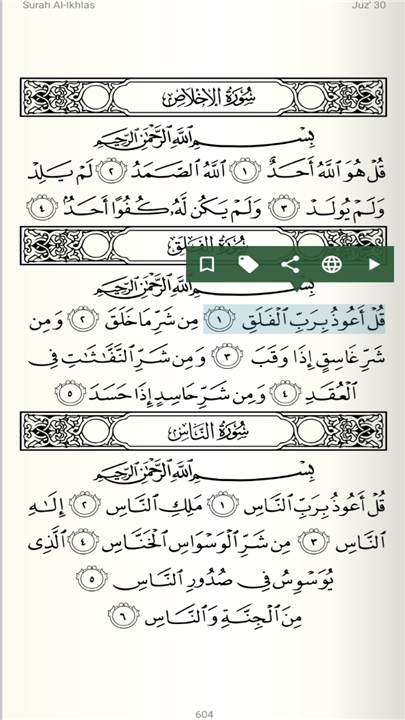 Surah Al-Ikhlas Juz' 30
سُورَةُ الإِخْلَاصِ
بِسْمِ ٱللَّهِ ٱلرَّحْمَٰنِ ٱلرَّحِيمِ
قُلْ هُوَ ٱللَّهُ أَحَدٌ ١ ٱللَّهُ ٱلصَّمَدُ ٢ لَمْ يَلِدْ
وَلَمْ يُولَدْ ٣ وَلَمْ يَكُن لَّهُۥ كُفُوًا أَحَدٌۢ ٤
سُورَةُ الفَلَقِ
بِسْمِ ٱللَّهِ ٱلرَّحْمَٰنِ ٱلرَّحِيمِ
قُلْ أَعُوذُ بِرَبِّ ٱلْفَلَقِ ١ مِن شَرِّ مَا خَلَقَ ٢ وَمِن
شَرِّ غَاسِقٍ إِذَا وَقَبَ ٣ وَمِن شَرِّ ٱلنَّفَّٰثَٰتِ فِى
ٱلْعُقَدِ ٤ وَمِن شَرِّ حَاسِدٍ إِذَا حَسَدَ ٥
سُورَةُ النَّاسِ
بِسْمِ ٱللَّهِ ٱلرَّحْمَٰنِ ٱلرَّحِيمِ
قُلْ أَعُوذُ بِرَبِّ ٱلنَّاسِ ١ مَلِكِ ٱلنَّاسِ ٢ إِلَٰهِ
ٱلنَّاسِ ٣ مِن شَرِّ ٱلْوَسْوَاسِ ٱلْخَنَّاسِ ٤ ٱلَّذِى
يُوَسْوِسُ فِى صُدُورِ ٱلنَّاسِ ٥
مِنَ ٱلْجِنَّةِ وَٱلنَّاسِ ٦
604